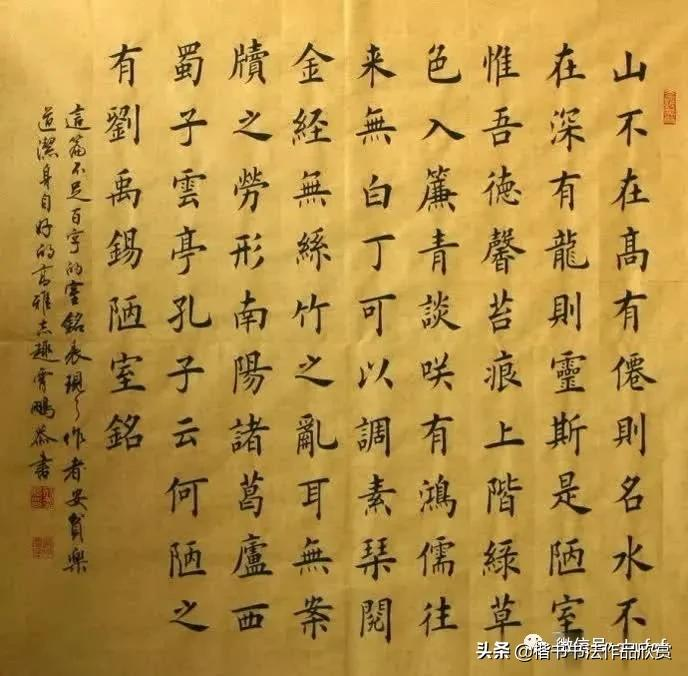 山不在髙有僊則名水不
在深有龍則靈斯是陋室
惟吾德馨苔痕上階綠草
色入簾青談咲有鴻儒往
来無白丁可以調素琹閱
金経無絲竹之亂耳無案
牘之勞形南陽諸葛廬西
蜀子雲亭孔子云何陋之
有劉禹錫陋室銘
這篇不足百字的室銘表現了作者安貧樂
道潔身自好的高雅志趣鵬恭書
微信号
头条 @楷书书法作品欣赏